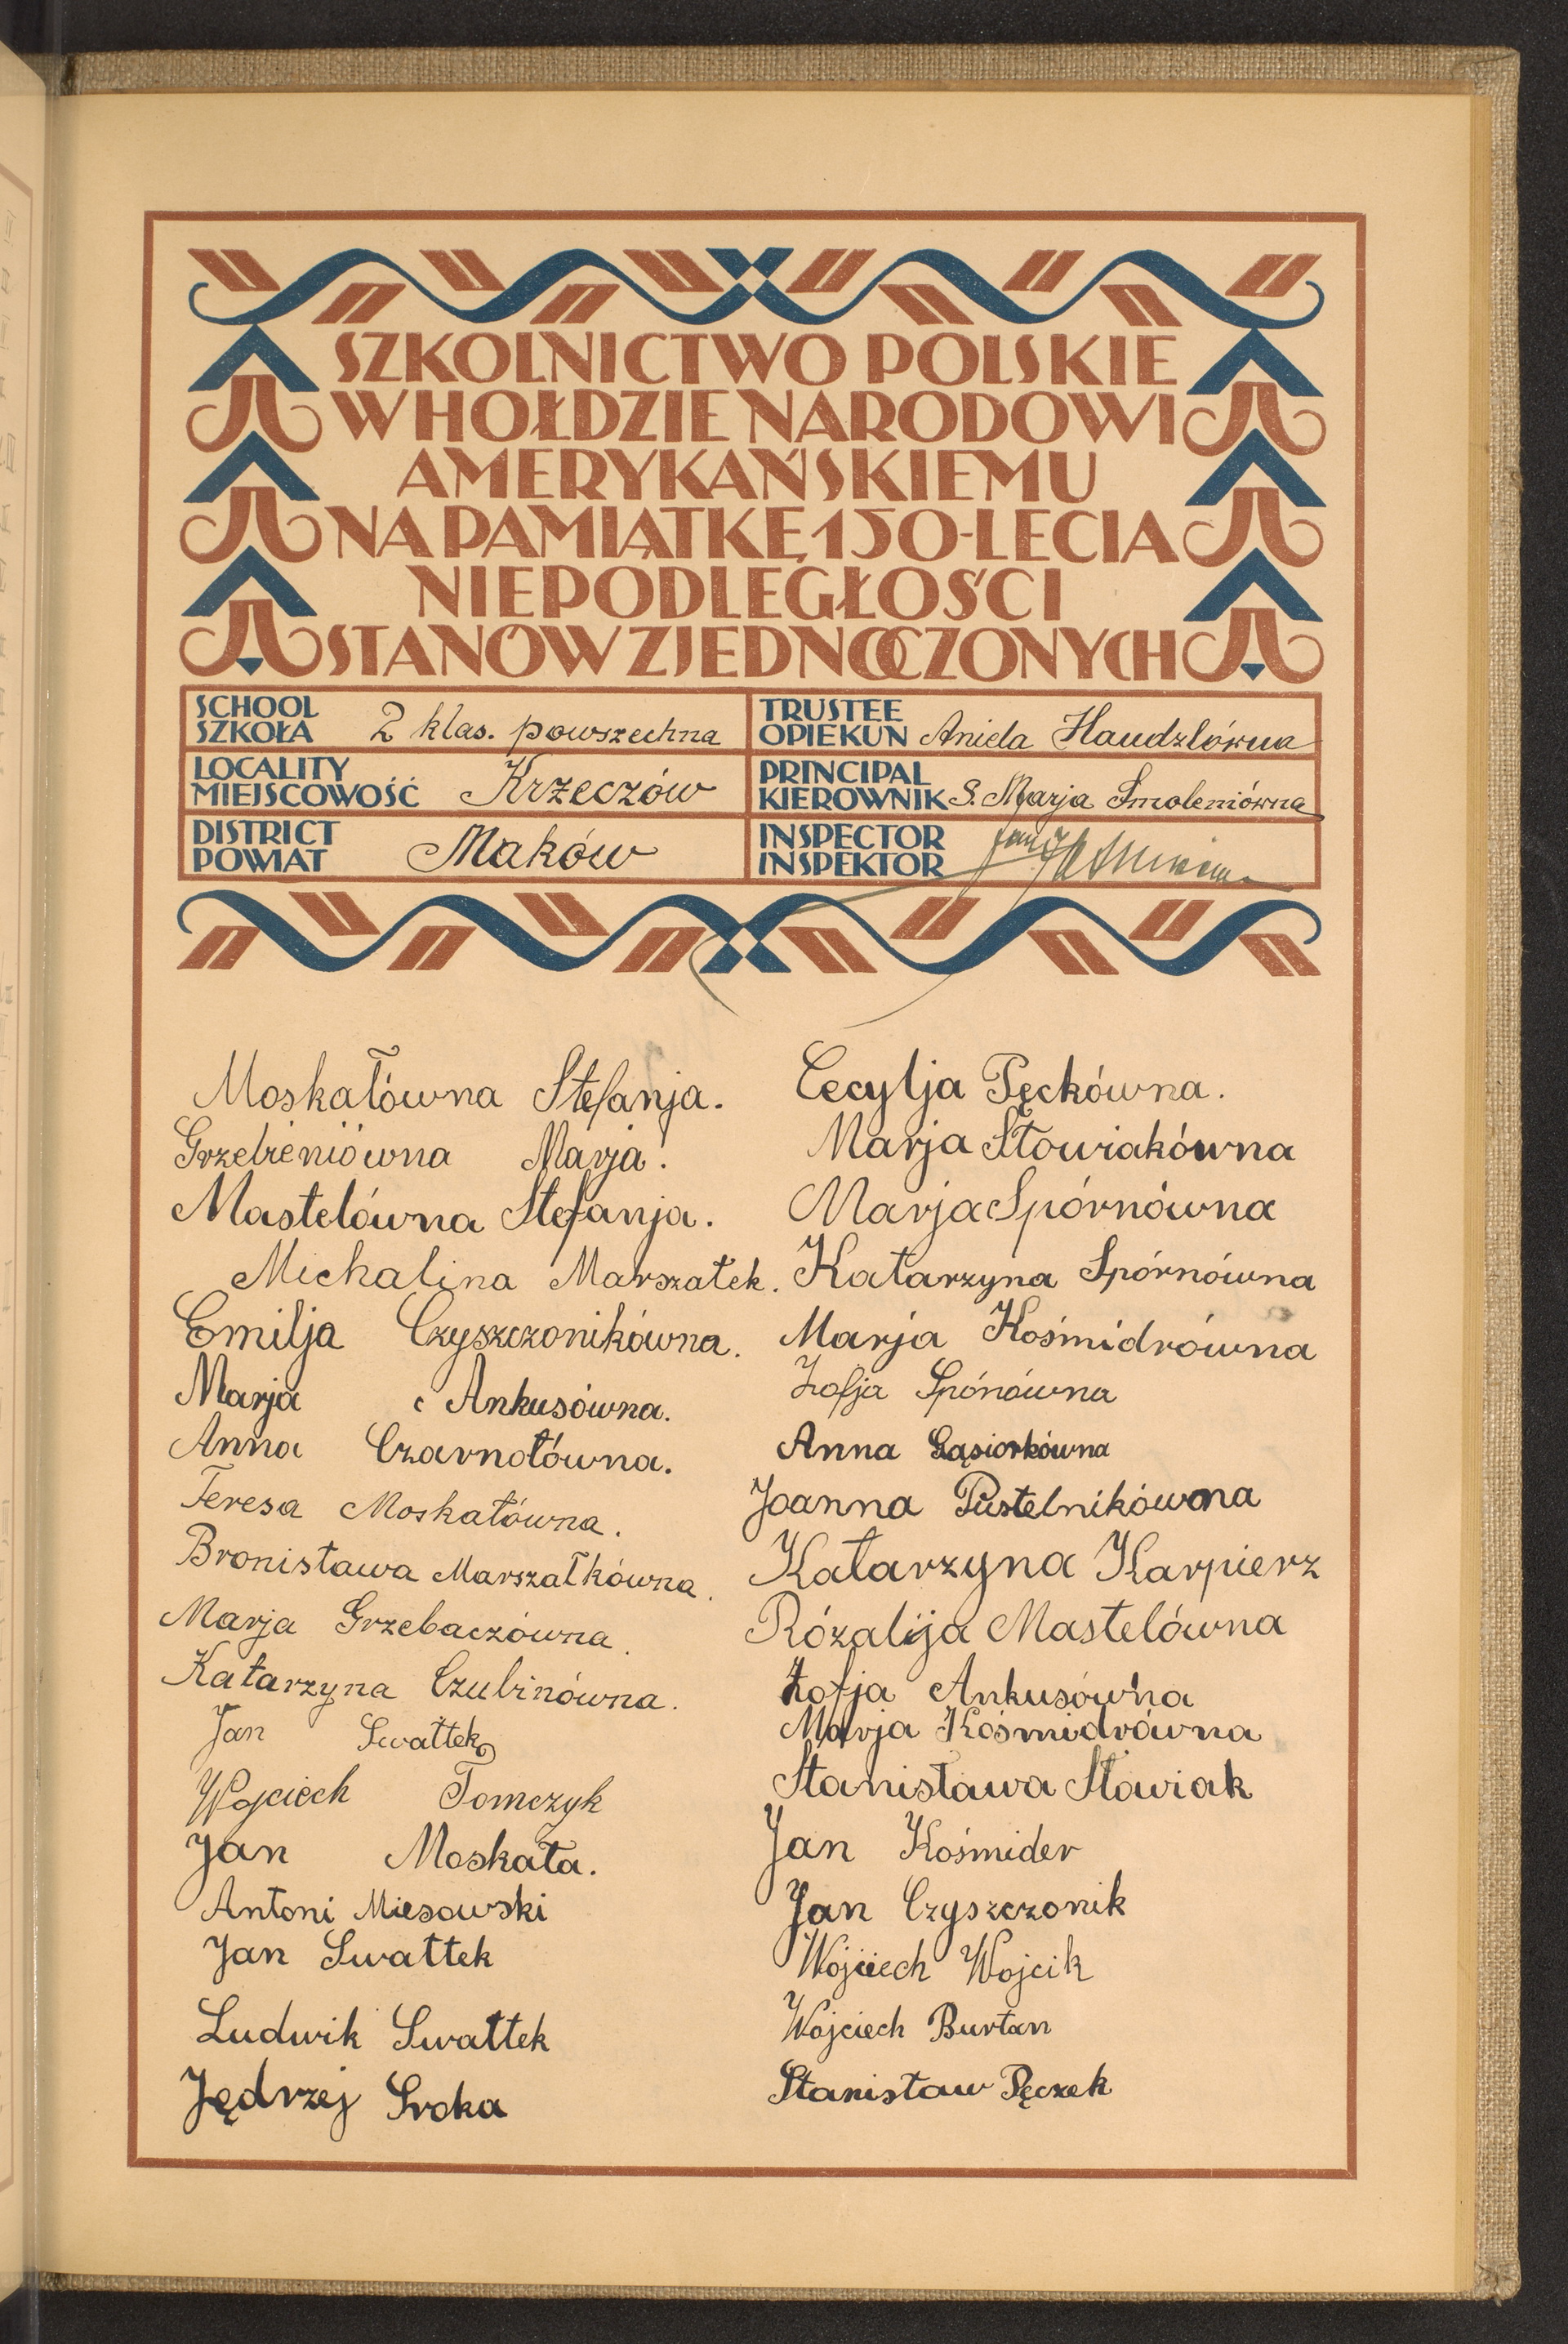 SZKOLNICTWO POLSKIE
W HOŁDZIE NARODOWI
AMERYKAŃSKIEMU
NA PAMIĄTKĘ 150-LECIA
NIEPODLEGŁOŚCI
STANÓW ZJEDNOCZONYCH
SCHOOL
SZKOŁA 2 klas. powszechna
TRUSTEE
OPIEKUN Aniela Haudzlówna
LOCALITY
MIEJSCOWOŚĆ Krzeczów
PRINCIPAL
KIEROWNIK S. Marja Smoleniówna
DISTRICT
POWIAT Maków
INSPECTOR
INSPEKTOR
Moskałówna Stefanja.
Grzebieniówna Marja.
Mastelówna Stefanja.
Michalina Marszałek.
Emilja Czyszczonikówna.
Marja Ankusówna.
Anna Czarnotówna.
Teresa Moskałówna.
Bronisława Marszałkówna.
Marja Grzebaczówna.
Katarzyna Czubinówna.
Jan Swałtek
Wojciech Tomczyk
Jan Moskała.
Antoni Miesowski
Jan Swałtek
Ludwik Swałtek
Jędrzej Sroka
Cecylja Pęckówna.
Marja Słowiakówna
Marja Spórnówna
Katarzyna Spórnówna
Marja Kośmidrówna
Zofja Spónówna
Anna Gąsiorkówna
Joanna Pustelnikówna
Katarzyna Karpierz
Rózalija Mastelówna
Zofja Ankusówna
Marja Kośmidrówna
Stanisława Słowiak
Jan Kośmider
Jan Czyszczonik
Wojciech Wojcik
Wojciech Burtan
Stanisław Pęczek